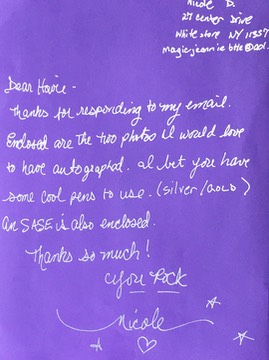 Nicole D.
27 Center Drive
White store NY 11357
Dear Howie-
Thanks for responding to my email.
Enclosed are the two photos I would love
to have autographed. I bet you have
some cool pens to use. (silver/GOLD)
An SASE is also enclosed.
Thanks so much!
You Rock
Nicole